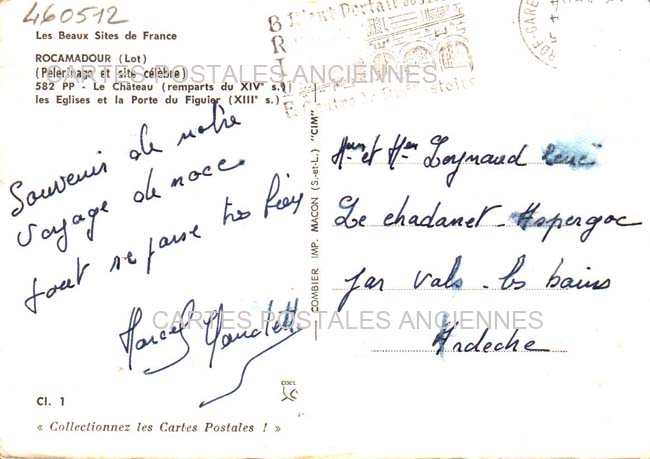 460512
Les Beaux Sites de France
ROCAMADOUR (Lot)
(Pèlerinage et site célèbre)
582 PP - Le Château (remparts du XIV° s.)
les Eglises et la Porte du Figuier (XIII° s.)
CARTES POSTALES ANCIENNES
Souvenir de notre
voyage de noce
tout se passe très bien
Marcel Maudette
Cl. 1
« Collectionnez les Cartes Postales ! »
COMBIER IMP. MACON (S.-et-L.) "CIM"
BRI
et Loynaud René
Le chadanet - Aspergoc
par vals les bains
Ardeche
CARTES POSTALES ANCIENNES